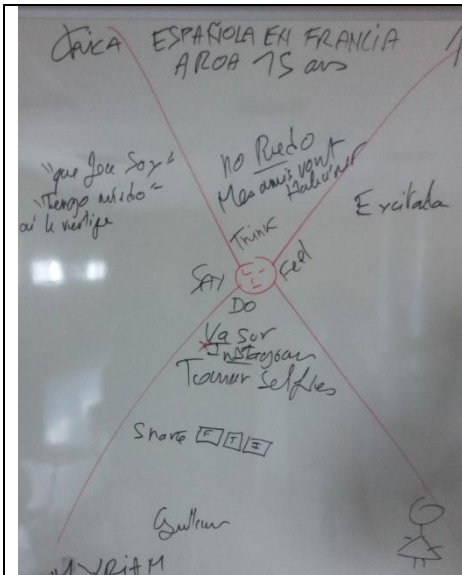 CHICA ESPAÑOLA EN FRANCIA
AROA 15 ans
"que Joer Soy"
"Tengo miedo"
ai le vertige
no Puedo
Mes amis vont
Halluciner
Excitada
Think
SAY
Feel
DO
Va sur
Instagram
Tomar Selfies
Share F T I
MYRIAM